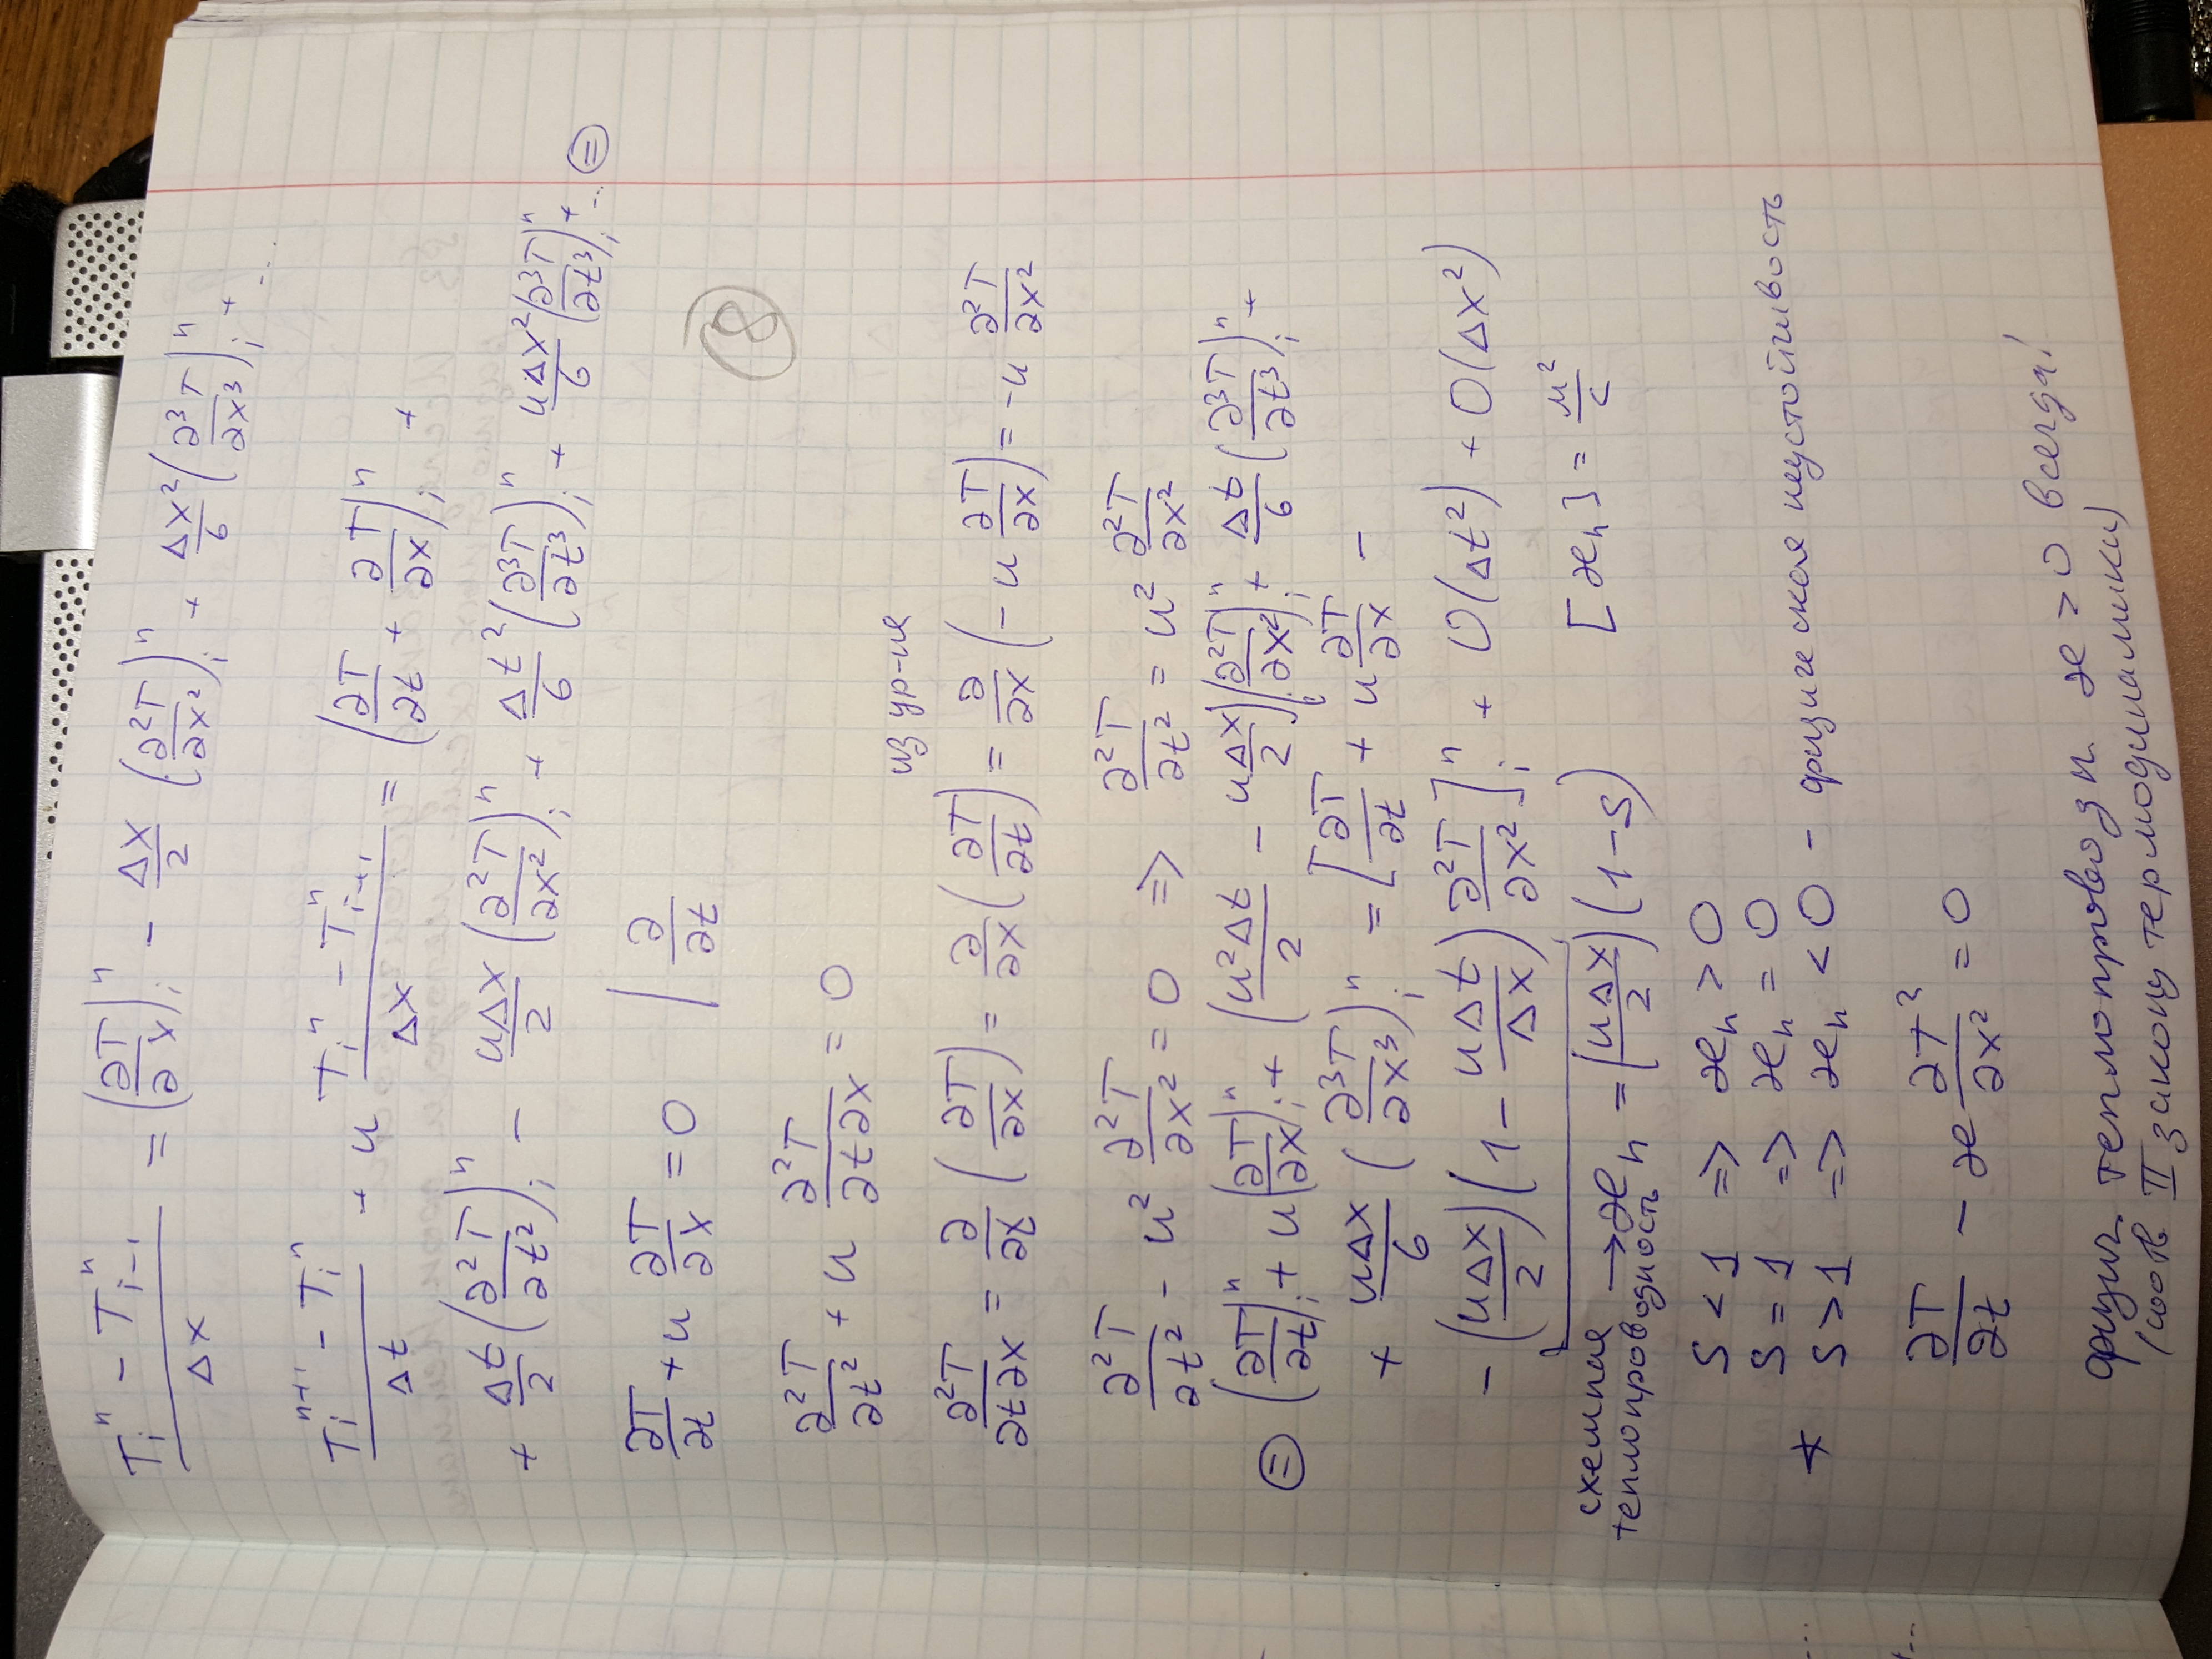 (T_i^n - T_{i-1}^n)/Δx = (∂T/∂x)_i^n - Δx/2 (∂²T/∂x²)_i^n + Δx²/6 (∂³T/∂x³)_i^n + ...
(T_i^{n+1} - T_i^n)/Δt + u (T_i^n - T_{i-1}^n)/Δx = (∂T/∂t + ∂T/∂x)_i^n +
+ Δt/2 (∂²T/∂t²)_i^n - uΔx/2 (∂²T/∂x²)_i^n + Δt²/6 (∂³T/∂t³)_i^n + uΔx²/6 (∂³T/∂t³)_i^n + ... ⊜
∂T/∂t + u ∂T/∂x = 0 | ∂/∂t
8
∂²T/∂t² + u ∂²T/∂t∂x = 0
из ур-ия
∂²T/∂t∂x = ∂/∂t (∂T/∂x) = ∂/∂x (∂T/∂t) = ∂/∂x (-u ∂T/∂x) = -u ∂²T/∂x²
∂²T/∂t² - u² ∂²T/∂x² = 0 => ∂²T/∂t² = u² ∂²T/∂x²
⊜ (∂T/∂t)_i^n + u(∂T/∂x)_i^n + (u²Δt/2 - uΔx/2)(∂²T/∂x²)_i^n + Δt/6 (∂³T/∂t³)_i^n +
+ uΔx/6 (∂³T/∂x³)_i^n = [∂T/∂t + u ∂T/∂x -
- (uΔx/2)(1 - uΔt/Δx) ∂²T/∂x²]_i^n + O(Δt²) + O(Δx²)
схемная теплопроводность → æ_n = (uΔx/2)(1-s) [æ_n] = м²/с
s < 1 => æ_n > 0
s = 1 => æ_n = 0
* s > 1 => æ_n < 0 - физическая неустойчивость
∂T/∂t - æ ∂T²/∂x² = 0
физич. теплопроводн. æ > 0 всегда!
(соотв II закону термодинамики)